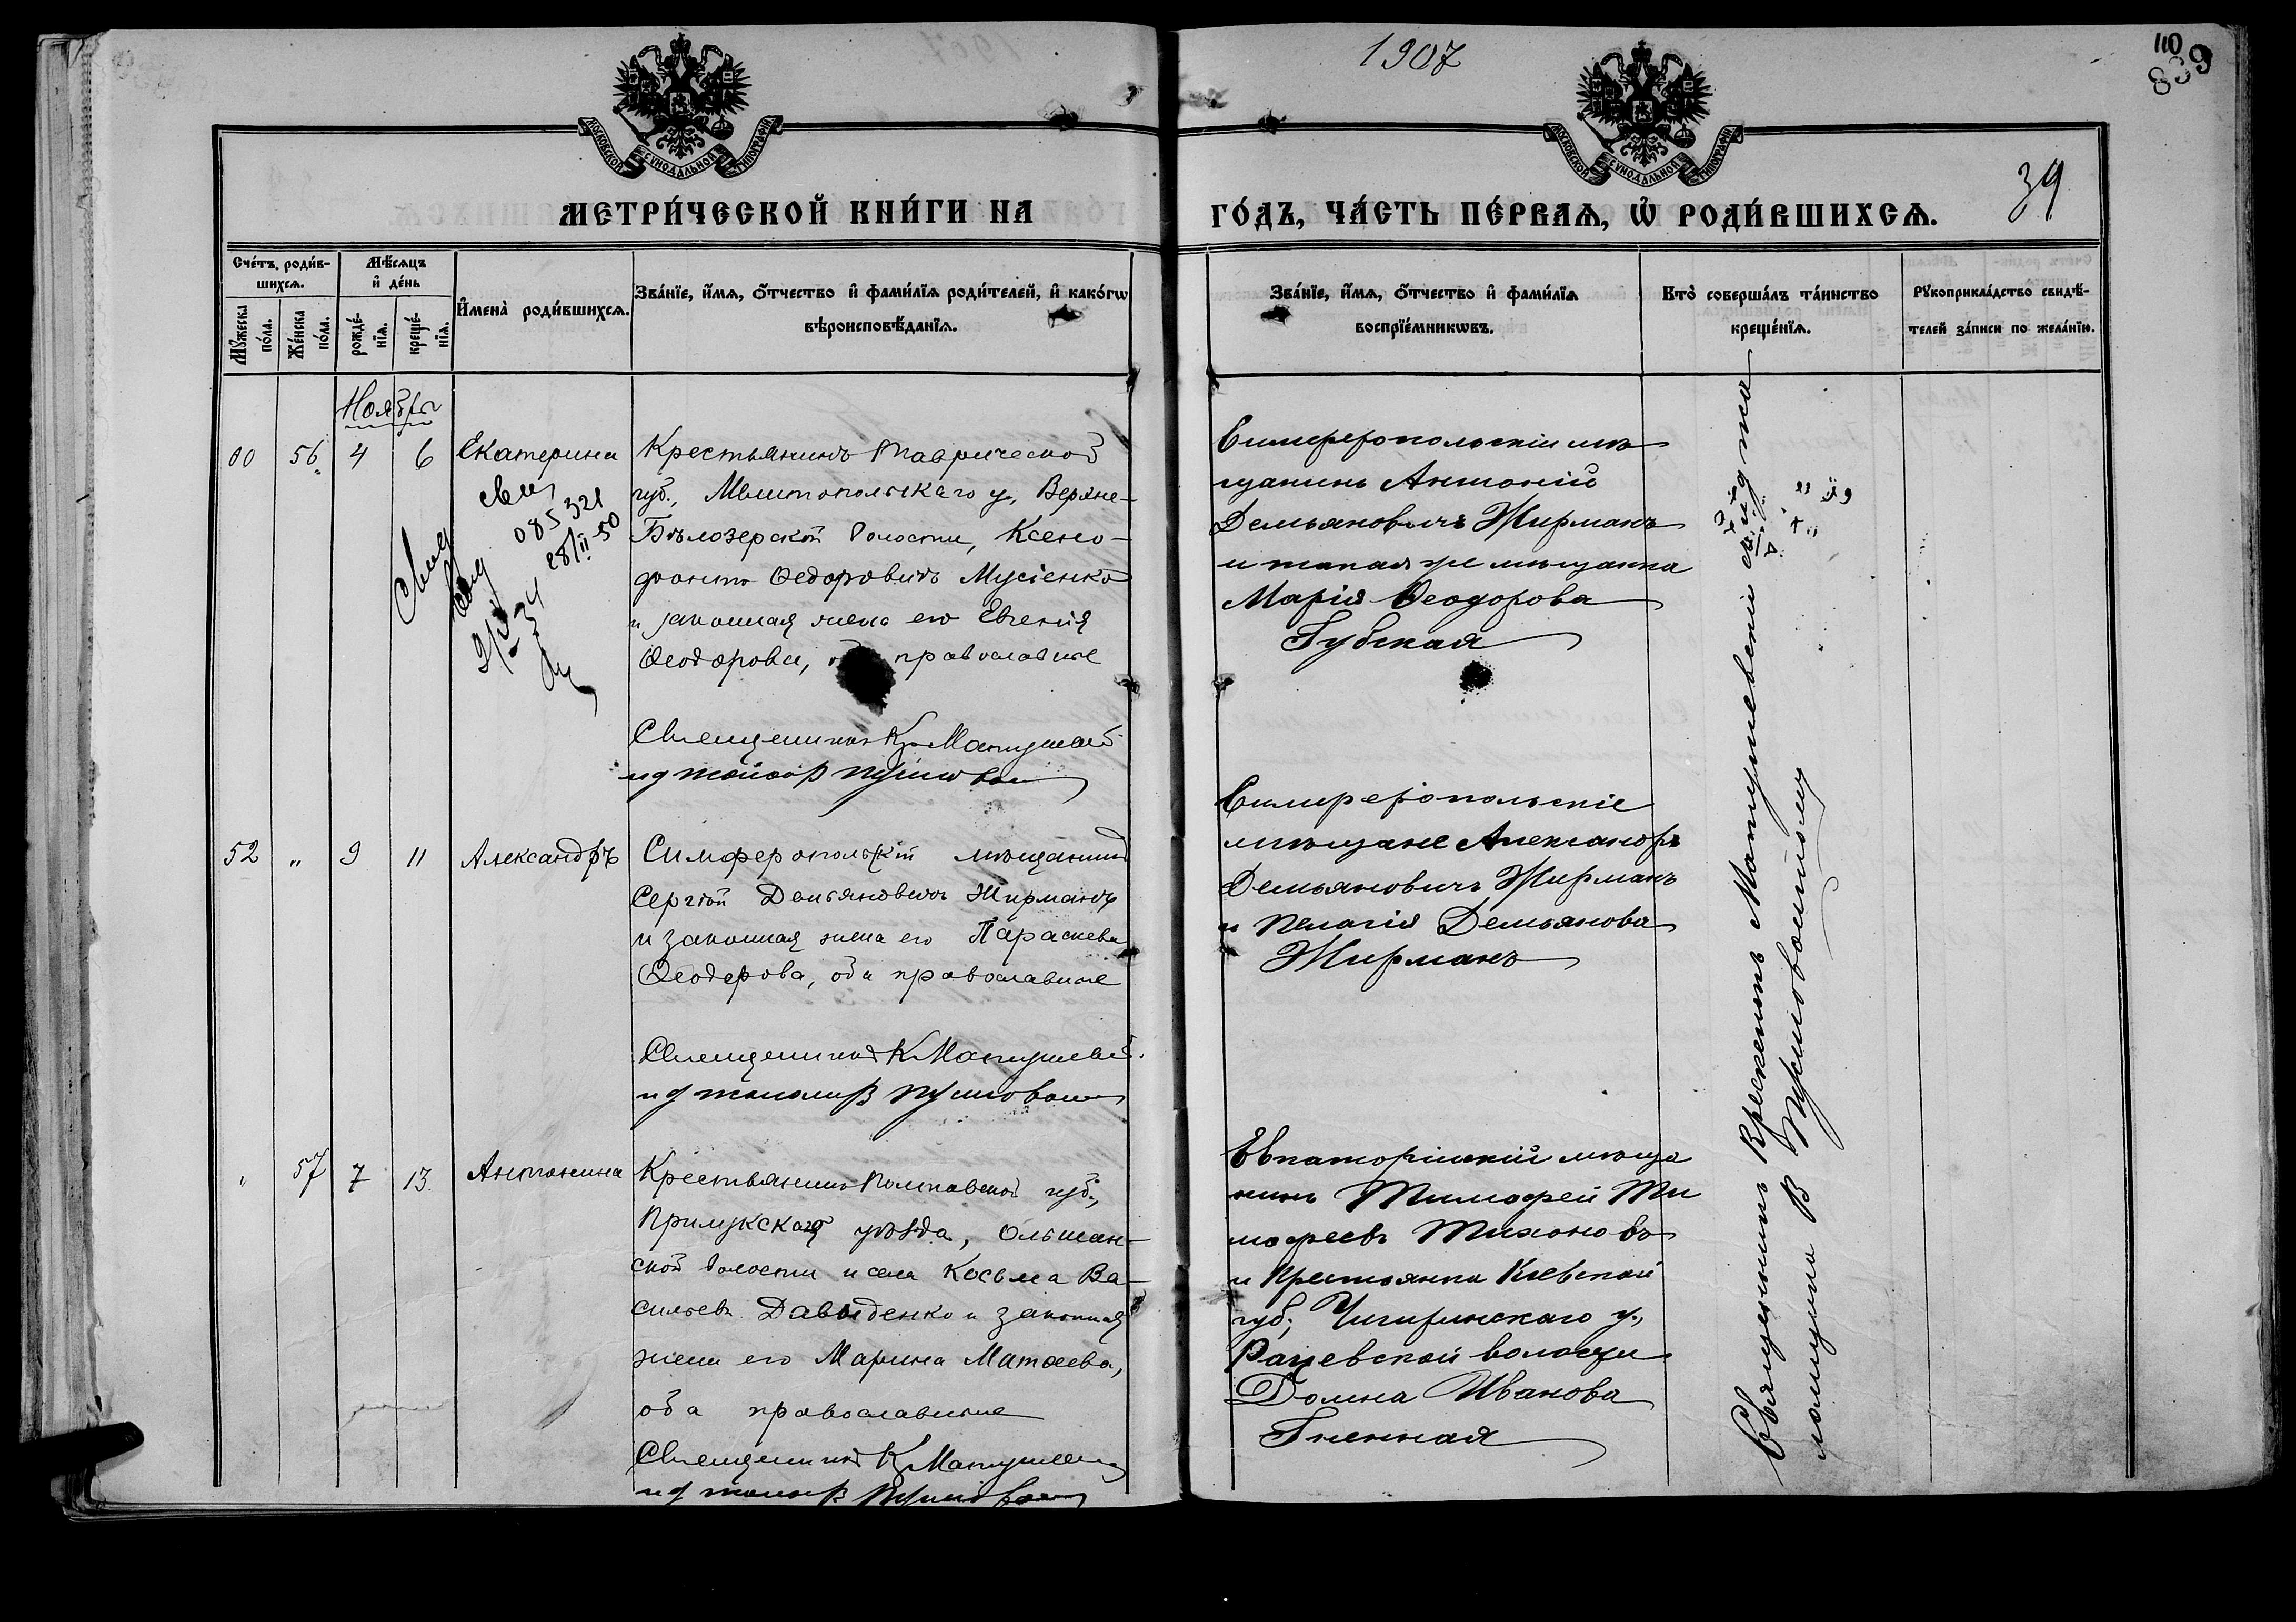 1907
110
839
39
МОСКОВСКОЙ СѴНОДАЛЬНОЙ ТИПОГРАФІИ
МОСКОВСКОЙ СѴНОДАЛЬНОЙ ТИПОГРАФІИ
МЕТРИ́ЧЕСКОЙ КНИ́ГИ НА
ГО́ДЪ, ЧА́СТЬ ПЕ́РВАѦ, Ѡ҆ РОДИ́ВШИХСѦ.
Сче́тъ роди́в-
шихсѧ.
Мꙋжеска по́ла.
Же́нска по́ла.
Мѣ́сѧцъ
и҆ де́нь
рожде́-
нїѧ.
креще́-
нїѧ.
И҆мена̀ роди́вшихсѧ.
Зва́нїе, и҆́мѧ, ѻ҆́тчество и҆ фами́лїѧ роди́телей, и҆ како́гѡ
вѣроисповѣ́данїѧ.
Зва́нїе, и҆́мѧ, ѻ҆́тчество и҆ фами́лїѧ
воспрїе́мникѡвъ.
Кто̀ соверша́лъ та́инство
креще́нїѧ.
Рꙋкоприкла́дство свидѣ́-
телей за́писи по жела́нїю.
Ноябрь
00 56 4 6 Екатерина
085321
28/II-50
Крестьянинъ Таврической
губ., Мелитопольскаго у., Верхне-
Бѣлозерской волости, Ксено-
фонтъ Ѳедоровичъ Мусіенко
и законная жена его Евгенія
Ѳеодорова, православные
Священникъ К. Матушевскій
Симферопольскій мѣ
щанинъ Антоній
Демьяновичъ Жирманъ
и такая же мѣщанка
Марія Ѳеодорова
Губская
52 " 9 11 Александръ
Симферопольскій мѣщанинъ
Сергій Демьяновичъ Жирманъ
и законная жена его Параскева
Ѳеодорова, оба православные
Священникъ К. Матушевскій
Симферопольскіе
мѣщане Александръ
Демьяновичъ Жирманъ
и Пелагія Демьянова
Жирманъ
" 57 7 13 Антонина
Крестьянинъ Полтавской губ.,
Прилукскаго уѣзда, Ольшан-
ской волости и села Косьма Ва-
сильевъ Давыденко и законная
жена его Марина Матѳеева,
оба православные
Священникъ К. Матушевскій
Евпаторійскій мѣща
нинъ Тимофей Ти
мофеевъ Тихоновъ
и крестьянка Кіевской
губ., Чигиринскаго у.,
Рацевской волости
Домна Иванова
Гненная
Священникъ Крескентъ Матушевскій